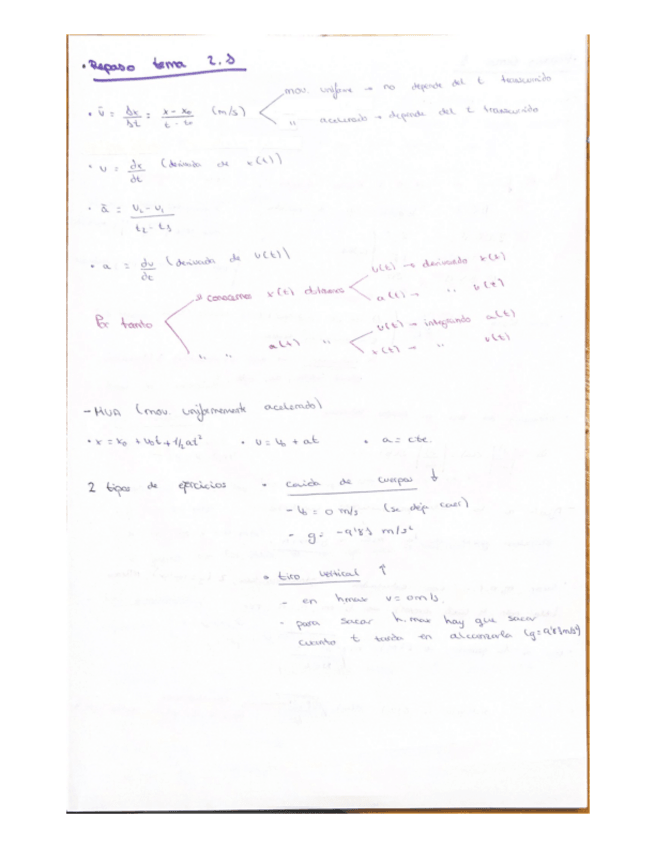 • Repaso tema 2.
mov. uniforme → no depende del t transcurrido
• v̄ = Δx/Δt = x - x₀/t - t₀ (m/s)
" acelerado → depende del t transcurrido
• v = dx/dt (derivada de x(t))
• ā = v₂ - v₁/t₂ - t₁
• a = dv/dt (derivada de v(t))
v(t) → derivando x(t)
Si conocemos x(t) obtenemos
a(t) → " v(t)
Por tanto
v(t) → integrando a(t)
" " a(t) "
x(t) → " v(t)
- MUA (mov. uniformemente acelerado)
• x = x₀ + v₀t + 1/2 at² • v = v₀ + at • a = cte.
2 tipos de ejercicios • caida de cuerpos ↓
- v₀ = 0 m/s (se deja caer)
- g = -9'8 m/s²
• tiro vertical ↑
- en hmax v = 0 m/s.
- para sacar h.max hay que sacar
cuanto t tarda en alcanzarla